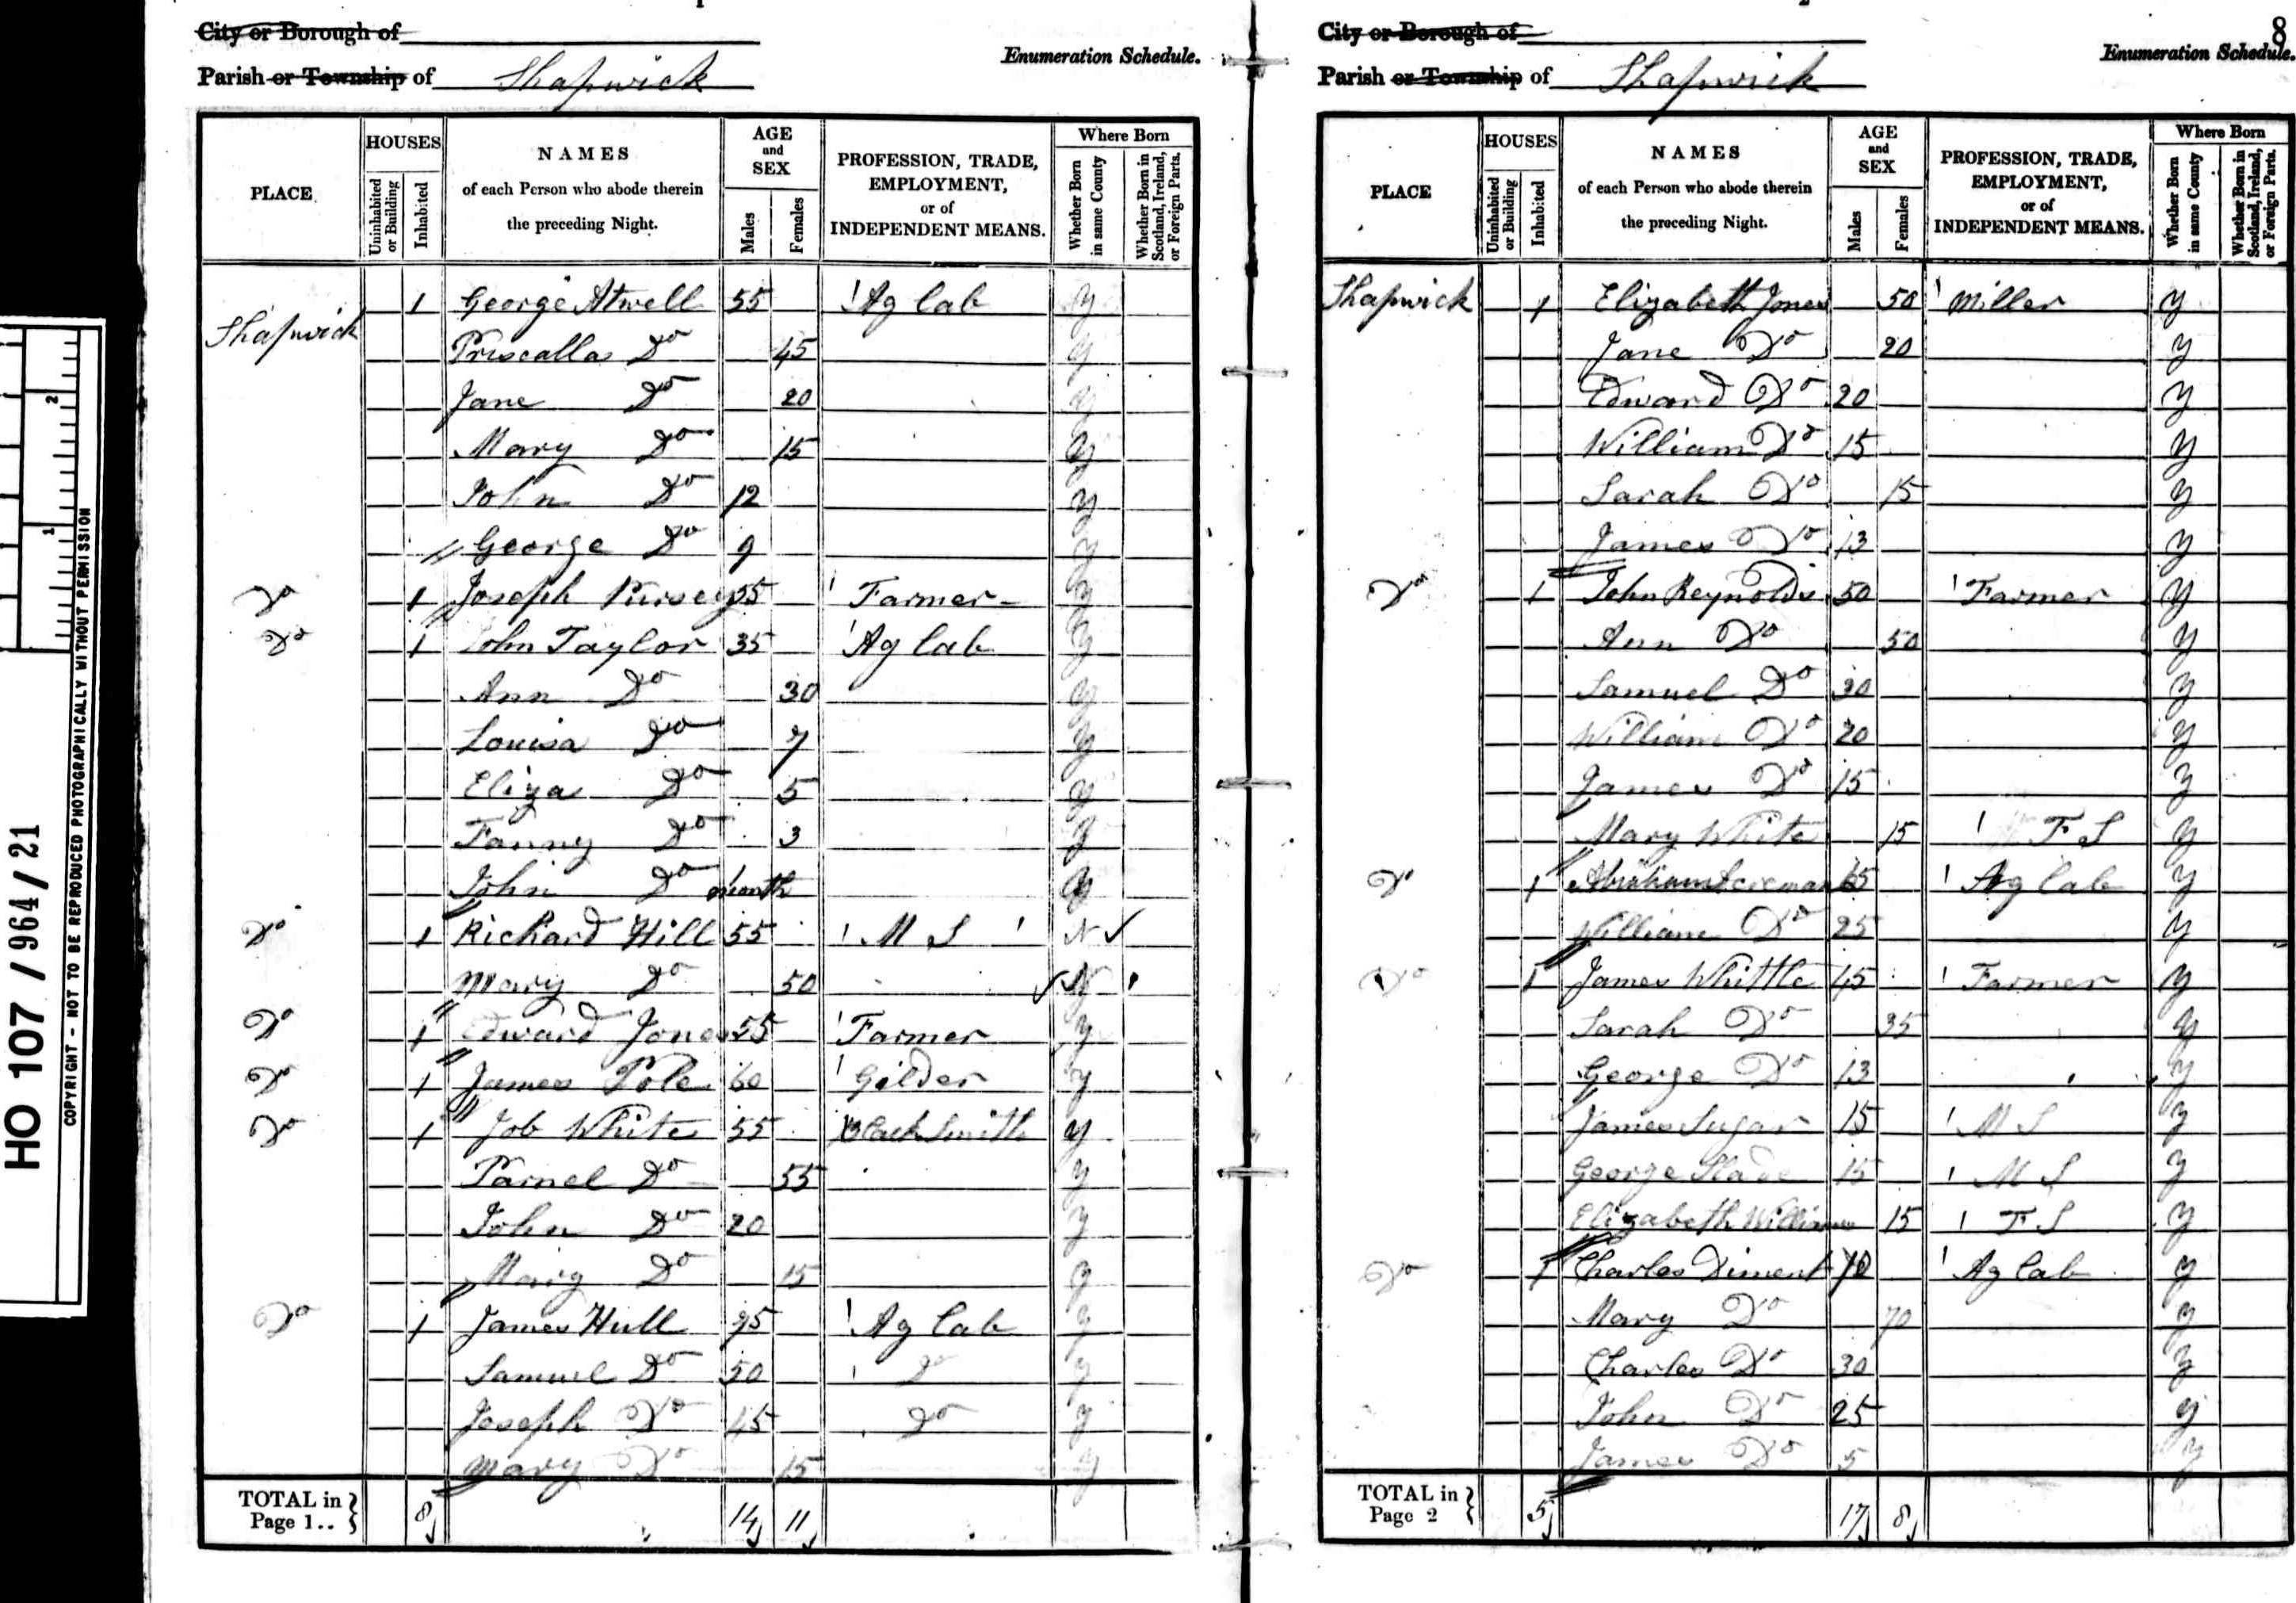 HO 107 / 964 / 21
COPYRIGHT - NOT TO BE REPRODUCED PHOTOGRAPHICALLY WITHOUT PERMISSION
1
2
1
City or Borough of
Parish or Township of Shapwick
Enumeration Schedule.
PLACE
HOUSES
Uninhabited or Building
Inhabited
NAMES
of each Person who abode therein
the preceding Night.
AGE
and
SEX
Males
Females
PROFESSION, TRADE,
EMPLOYMENT,
or of
INDEPENDENT MEANS.
Where Born
Whether Born in same County
Whether Born in Scotland, Ireland, or Foreign Parts.
Shapwick 1 George Atwell 55 Ag Lab y
Priscalla Do 45 y
Jane Do 20 y
Mary Do 15 y
John Do 12 y
George Do 9 y
Do 1 Joseph Pursey 55 Farmer y
Do 1 John Taylor 35 Ag Lab y
Ann Do 30 y
Louisa Do 7 y
Eliza Do 5 y
Fanny Do 3 y
John Do month y
Do 1 Richard Hill 55 M S N
Mary Do 50 N
Do 1 Edward Jones 55 Farmer y
Do 1 James Pole 60 Gilder y
Do 1 Job White 55 Black Smith y
Parnel Do 55 y
John Do 20 y
Mary Do 15 y
Do 1 James Hull 95 Ag Lab y
Samuel Do 50 Do y
Joseph Do 45 Do y
Mary Do 15 y
TOTAL in Page 1.. 8 14 11
2
8
City or Borough of
Parish or Township of Shapwick
Enumeration Schedule.
PLACE
HOUSES
Uninhabited or Building
Inhabited
NAMES
of each Person who abode therein
the preceding Night.
AGE
and
SEX
Males
Females
PROFESSION, TRADE,
EMPLOYMENT,
or of
INDEPENDENT MEANS.
Where Born
Whether Born in same County
Whether Born in Scotland, Ireland, or Foreign Parts.
Shapwick 1 Elizabeth Jones 50 Miller y
Jane Do 20 y
Edward Do 20 y
William Do 15 y
Sarah Do 15 y
James Do 13 y
Do 1 John Reynolds 50 Farmer y
Ann Do 50 y
Samuel Do y
William Do 20 y
James Do 15 y
Mary White 15 F S y
Do 1 Abraham 65 Ag Lab y
William Do 25 y
Do 1 James Whittle 45 Farmer y
Sarah Do 35 y
George Do 13 y
James Sugar 15 M S y
George Slade 15 M S y
Elizabeth Williams 15 F S y
Do 1 Charles Diment 70 Ag Lab y
Mary Do 70 y
Charles Do 30 y
John Do 25 y
James Do 5 y
TOTAL in Page 2 5 17 8